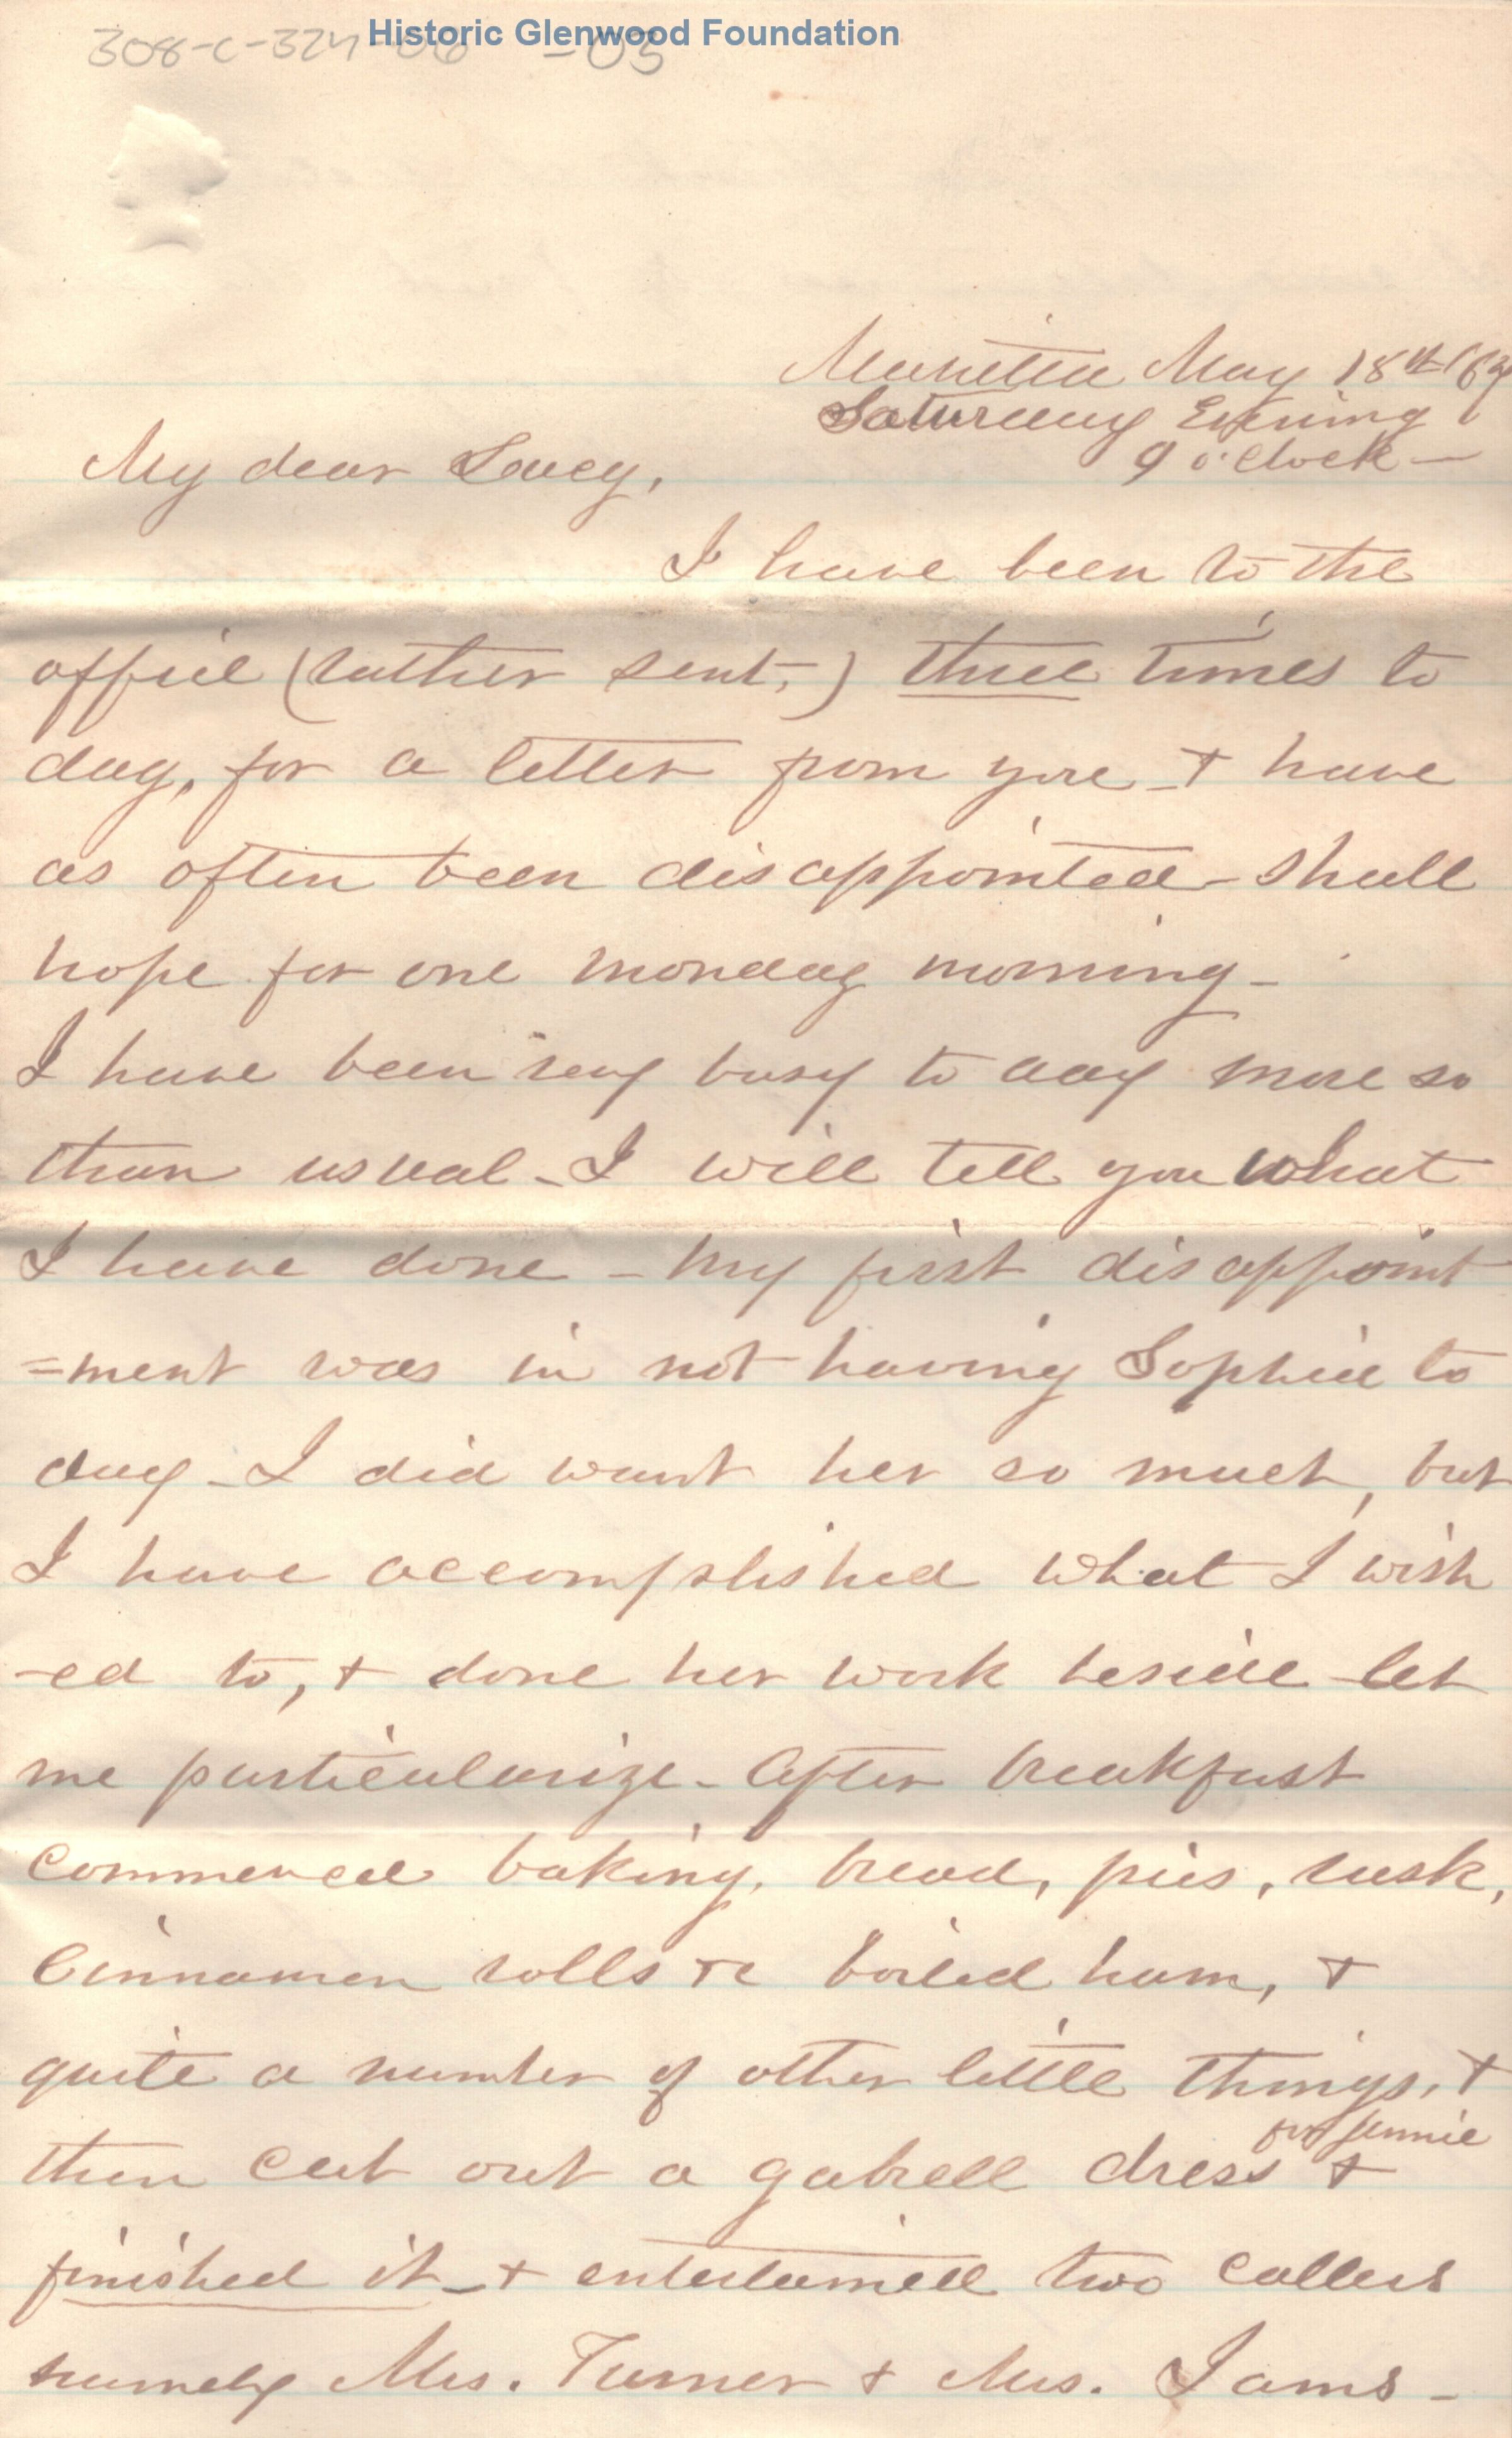 Historic Glenwood Foundation
308-C-324-06-03
Marietta May 18th/
Saturday Evening
9 o'clock—
My dear Lucy,
I have been to the
office (rather sent,) three times to
day, for a letter from you - + have
as often been disappointed - shall
hope for one monday morning -
I have been very busy to day more so
than usual - I will tell you what
I have done - my first disappoint
=ment was in not having Sophie to
day - I did want her so much, but
I have accomplished what I wish
-ed to, + done her work beside - let
me particularize - After breakfast
commenced baking, bread, pies, rusk,
Cinnamon rolls +c boiled ham, +
quite a number of other little things, +
for Jennie
then cut out a gabrell dress +
finished it - + entertained two callers
namely Mrs. Turner + Mrs. Iams -